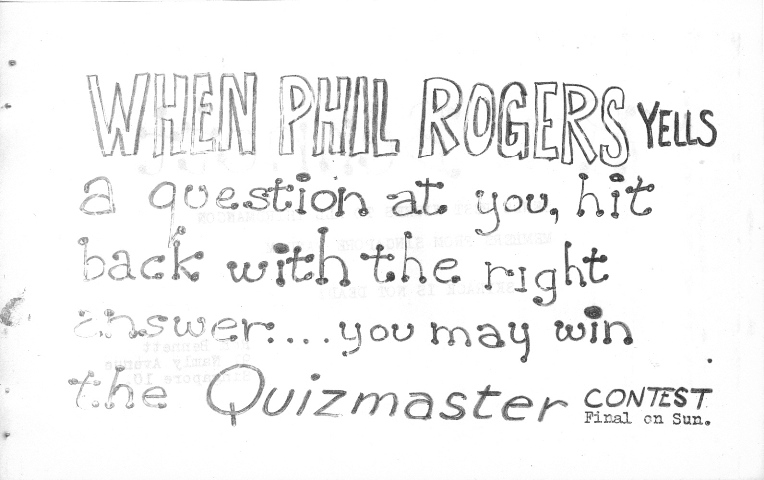 WHEN PHIL ROGERS YELLS
a question at you, hit
back with the right
answer....you may win
the Quizmaster CONTEST
Final on Sun.